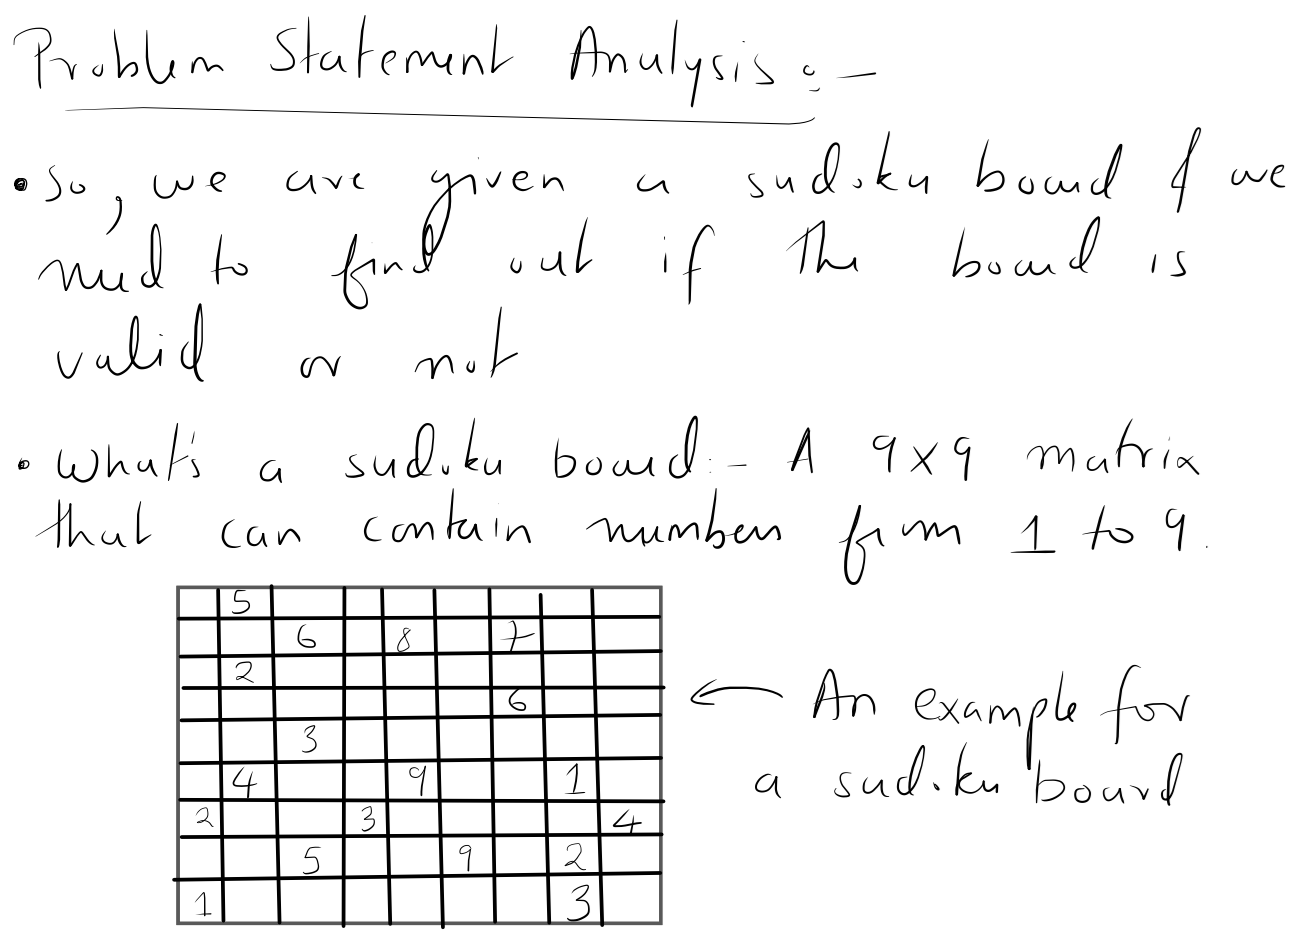 Problem Statement Analysis :-
• So, we are given a sudoku board & we
need to find out if the board is
valid or not
• What's a sudoku board :- A 9x9 matrix
that can contain numbers from 1 to 9.
5
6 8 7
2
6
3
4 9 1
2 3 4
5 9 2
1 3
← An example for
a sudoku board